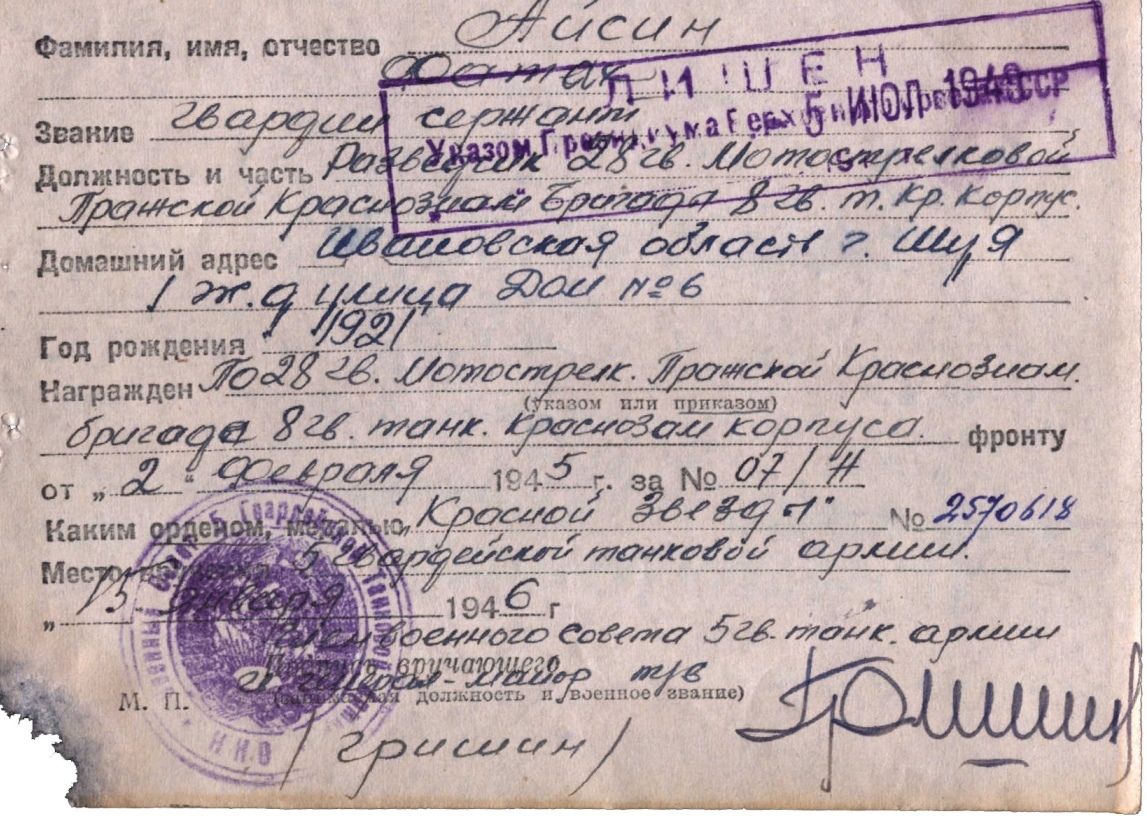 Фамилия, имя, отчество Айсин
Фатах
Звание гвардии сержант
ЛИШЕН
Указом Президиума Верховного
5 ИЮЛ 1949
Должность и часть Разведчик 28 гв. Мотострелковой
Пражской Краснознам Бригада 8 гв. т. Кр. Корпус.
Домашний адрес Ивановская област г. Шуя
1 ж.д улица Дом №6
Год рождения 1921
Награжден По 28 гв. Мотострелк. Пражской Краснознам.
(указом или приказом)
бригада 8 гв. танк. Краснозам корпуса. фронту
от „2“ февраля 1945 г. за № 07/Н
Каким орденом, медалью, „Красной Звезды" № 2570618
Место вручения 5 гвардейской танковой армии.
„15 января 1946 г
Член военного совета 5 гв. танк. армии
Подпись вручающего
генерал-майор т/в
должность и военное звание)
М. П.
/Гришин/